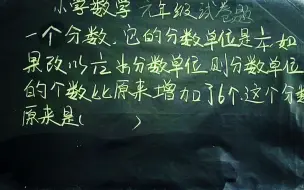 小学数学 六年级试卷题
一个分数,它的分数单位是
果改以 为分数单位 则分数单位
的个数比原来增加了6个.这个分数
原来是( )